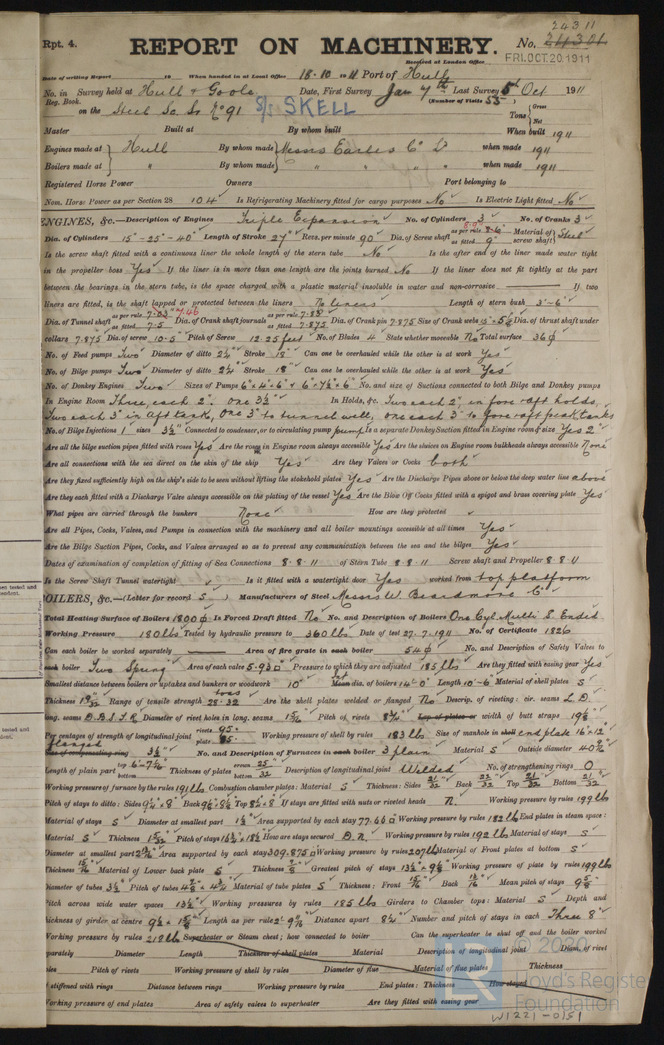 24311
Rpt. 4. REPORT ON MACHINERY. No. 24301
Received at London Office FRI. OCT. 20. 1911
Date of writing Report 19 When handed in at Local Office 18.10.1911 Port of Hull
No. in Survey held at Hull & Goole Date, First Survey Jan 7th Last Survey 5th Oct 1911
Reg. Book. (Number of Visits 55)
on the Steel Sc Sr No 91 S/S SKELL Tons { Gross Net
Master Built at By whom built When built 1911
Engines made at Hull By whom made Messrs Earles Co Ld when made 1911
Boilers made at " By whom made " " " when made 1911
Registered Horse Power Owners Port belonging to
Nom. Horse Power as per Section 28 104 Is Refrigerating Machinery fitted for cargo purposes No Is Electric Light fitted No
ENGINES, &c.—Description of Engines Triple Expansion No. of Cylinders 3 No. of Cranks 3
Dia. of Cylinders 15"-25"-40" Length of Stroke 27" Revs. per minute 90 Dia. of Screw shaft as per rule 8.6" as fitted 9" Material of screw shaft Steel
Is the screw shaft fitted with a continuous liner the whole length of the stern tube No Is the after end of the liner made water tight
in the propeller boss Yes If the liner is in more than one length are the joints burned No If the liner does not fit tightly at the part
between the bearings in the stern tube, is the space charged with a plastic material insoluble in water and non-corrosive If two
liners are fitted, is the shaft lapped or protected between the liners No liners Length of stern bush 3'-6"
Dia. of Tunnel shaft as per rule 7.03" 7.46 as fitted 7.5 Dia. of Crank shaft journals as per rule 7.83" as fitted 7.875 Dia. of Crank pin 7.875 Size of Crank webs 15" x 5 1/8 Dia. of thrust shaft under
collars 7.875 Dia. of screw 10-5 Pitch of Screw 12.25 feet No. of Blades 4 State whether moveable No Total surface 36
No. of Feed pumps Two Diameter of ditto 2 1/4 Stroke 18" Can one be overhauled while the other is at work Yes
No. of Bilge pumps Two Diameter of ditto 2 1/4 Stroke 18" Can one be overhauled while the other is at work Yes
No. of Donkey Engines Two Sizes of Pumps 6"x4"x6" & 6"x7 1/2"x6" No. and size of Suctions connected to both Bilge and Donkey pumps
In Engine Room Three, each 2", one 3 1/2" In Holds, &c. Two each 2", in fore & aft holds,
Two each 3" in aft tank, One 3" to tunnel well, one each 3" to fore & aft peak tanks
No. of Bilge Injections 1 sizes 3 1/2" Connected to condenser, or to circulating pump pump Is a separate Donkey Suction fitted in Engine room & size Yes 2"
Are all the bilge suction pipes fitted with roses Yes Are the roses in Engine room always accessible Yes Are the sluices on Engine room bulkheads always accessible None
Are all connections with the sea direct on the skin of the ship Yes Are they Valves or Cocks both
Are they fixed sufficiently high on the ship's side to be seen without lifting the stokehold plates Yes Are the Discharge Pipes above or below the deep water line above
Are they each fitted with a Discharge Valve always accessible on the plating of the vessel Yes Are the Blow Off Cocks fitted with a spigot and brass covering plate Yes
What pipes are carried through the bunkers None How are they protected
Are all Pipes, Cocks, Valves, and Pumps in connection with the machinery and all boiler mountings accessible at all times Yes
Are the Bilge Suction Pipes, Cocks, and Valves arranged so as to prevent any communication between the sea and the bilges Yes
Dates of examination of completion of fitting of Sea Connections 8.8.11 of Stern Tube 8.8.11 Screw shaft and Propeller 8.8.11
Is the Screw Shaft Tunnel watertight Is it fitted with a watertight door Yes worked from top platform
BOILERS, &c.—(Letter for record S) Manufacturers of Steel Messrs W. Beardmore Co
Total Heating Surface of Boilers 1800 Is Forced Draft fitted No No. and Description of Boilers One Cyl Multi S. Ended
Working Pressure 180 lbs Tested by hydraulic pressure to 360 lbs Date of test 27.7.1911 No. of Certificate 1826
Can each boiler be worked separately Area of fire grate in each boiler 54 No. and Description of Safety Valves to
each boiler Two Spring Area of each valve 5.93 Pressure to which they are adjusted 185 lbs Are they fitted with easing gear Yes
Smallest distance between boilers or uptakes and bunkers or woodwork 10" Mean dia. of boilers 14'-0" Length 10'-6" Material of shell plates S
Thickness 1 9/32 Range of tensile strength 28-32 tons Are the shell plates welded or flanged No Descrip. of riveting: cir. seams L.D.
long. seams D.B.S.T.R Diameter of rivet holes in long. seams Pitch of rivets 8 3/4 Lap of plates or width of butt straps 19 5/8
Per centages of strength of longitudinal joint rivets 95. plate 85. Working pressure of shell by rules 183 lbs Size of manhole in shell end plate 16"x12"
Size of compensating ring flanged 3 1/2" No. and Description of Furnaces in each boiler 3 plain Material S Outside diameter 40 1/2"
Length of plain part top 6'-7 1/2" bottom Thickness of plates crown 25/32 bottom 25/32 Description of longitudinal joint Welded No. of strengthening rings 0
Working pressure of furnace by the rules 191 lbs Combustion chamber plates: Material S Thickness: Sides 21/32 Back 22/32 Top 21/32 Bottom 21/32
Pitch of stays to ditto: Sides 9 1/4 x 8 Back 9 1/8 x 8 1/2 Top 8 1/2 x 8 If stays are fitted with nuts or riveted heads N. Working pressure by rules 199 lbs
Material of stays S Diameter at smallest part Area supported by each stay 77.66 Working pressure by rules 182 lbs End plates in steam space:
Material S Thickness 1 5/32 Pitch of stays 16 1/2 x 18 1/2 How are stays secured D.N. Working pressure by rules 192 lbs Material of stays S
Diameter at smallest part Area supported by each stay 309.875 Working pressure by rules 207 lbs Material of Front plates at bottom S
Thickness 15/16 Material of Lower back plate S Thickness 7/8 Greatest pitch of stays 13 1/2 x 9 1/8 Working pressure of plate by rules 199 lbs
Diameter of tubes 3 1/2 Pitch of tubes Material of tube plates S Thickness: Front 15/16 Back 13/16 Mean pitch of stays 9 5/8
Pitch across wide water spaces 13 1/2" Working pressures by rules 185 lbs Girders to Chamber tops: Material S Depth and
thickness of girder at centre Length as per rule 2'-9 9/16 Distance apart 8 1/2" Number and pitch of stays in each Three 8"
Working pressure by rules 218 lbs Superheater or Steam chest; how connected to boiler Can the superheater be shut off and the boiler worked
separately Diameter Length Thickness of shell plates Material Description of longitudinal joint Diam. of rivet
holes Pitch of rivets Working pressure of shell by rules Diameter of flue Material of flue plates Thickness
If stiffened with rings Distance between rings Working pressure by rules End plates: Thickness How stayed
Working pressure of end plates Area of safety valves to superheater Are they fitted with easing gear
LR © 2020
Lloyd's Register
Foundation
W1221-0151